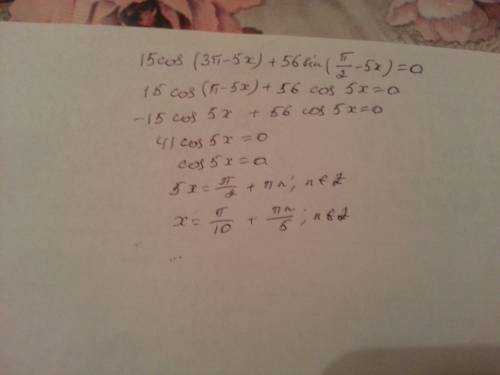 15cos(3π-5x)+56sin(π/2-5x)=0
15cos(π-5x)+56 cos 5x=0
-15 cos 5x + 56 cos 5x=0
41cos 5x=0
cos 5x=0
5x=π/2+πn; n∈Z
x=π/10+πn/5; n∈Z
...